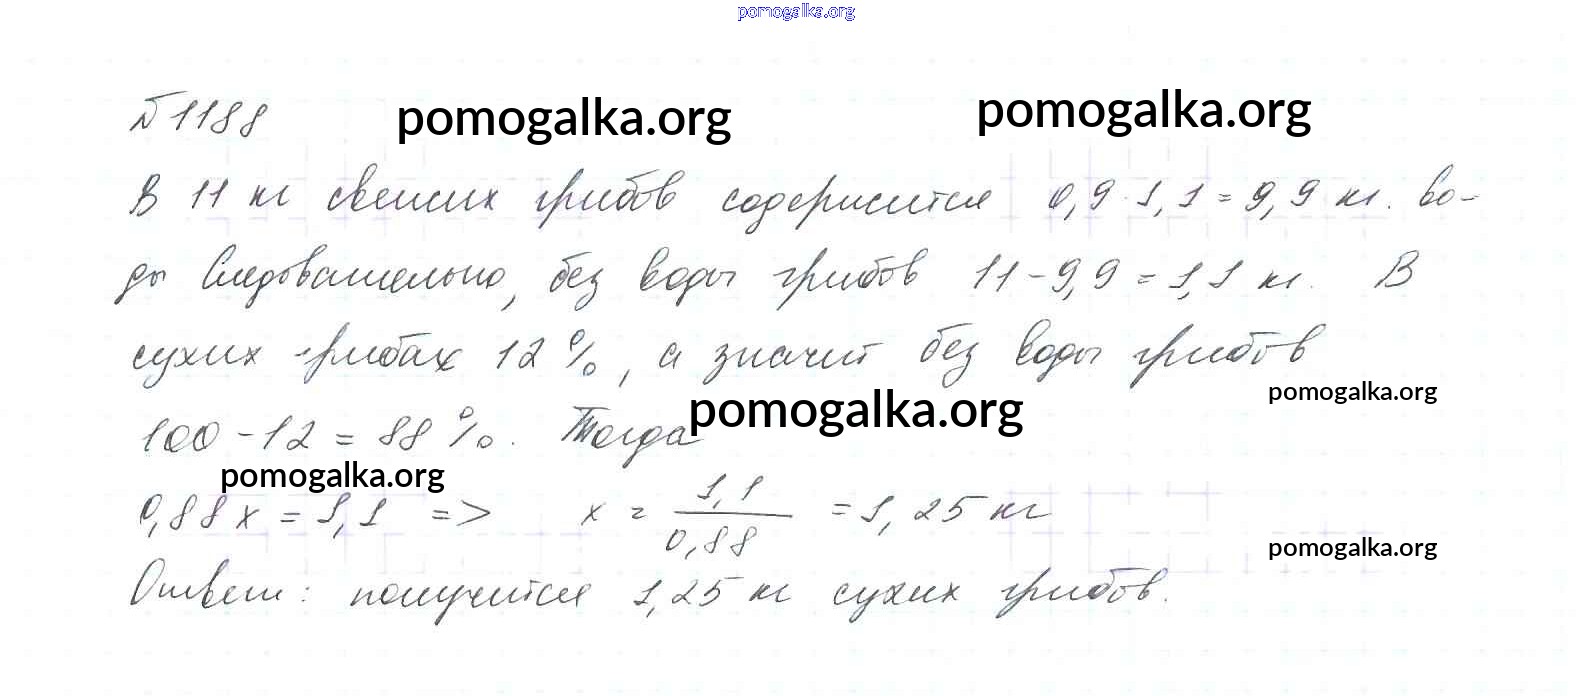 pomogalka.org
№1188
pomogalka.org
pomogalka.org
В 11 кг свежих грибов содержится 0,9 · 1,1 = 9,9 кг. во-
ды Следовательно, без воды грибов 11 - 9,9 = 1,1 кг. В
сухих грибах 12 %, а значит без воды грибов
pomogalka.org
100 - 12 = 88 %. Тогда
pomogalka.org
pomogalka.org
0,88 x = 1,1 => x = 1,1 / 0,88 = 1,25 кг
pomogalka.org
Ответ: получится 1,25 кг сухих грибов.